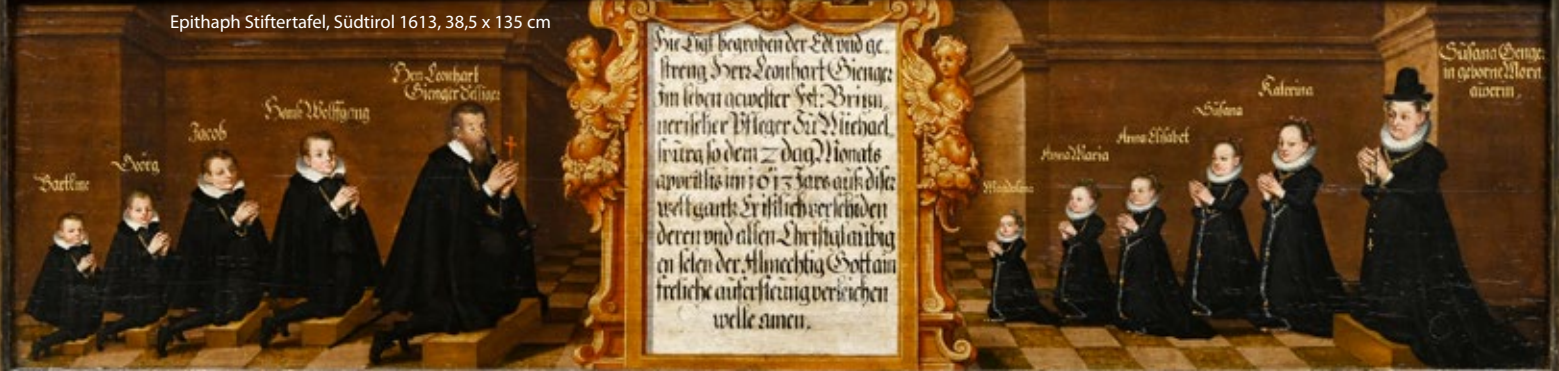 Epithaph Stiftertafel, Südtirol 1613, 38,5 x 135 cm
Bartlme
Georg
Jacob
Hanns Wolffgang
Herr Leonhart
Gienger
Hie Ligt begraben der Edl vnd ge,
streng Herr Leonhart Gienger
Im leben gewester Fst: Brixn,
nerischer Pfleger Zu Michael,
spurg so den 2 dag Monats
aporillis im 1613 Jars auß diser
welt gantz Cristlich verschiden
deren vnd allen Christglaubig
en selen der Almechtig Gott ain
freliche aufersteung verleichen
welle amen.
Magdalena
Anna Maria
Anna Elisabet
Susana
Katerina
Susana Genger
in geborne Morn
awerin